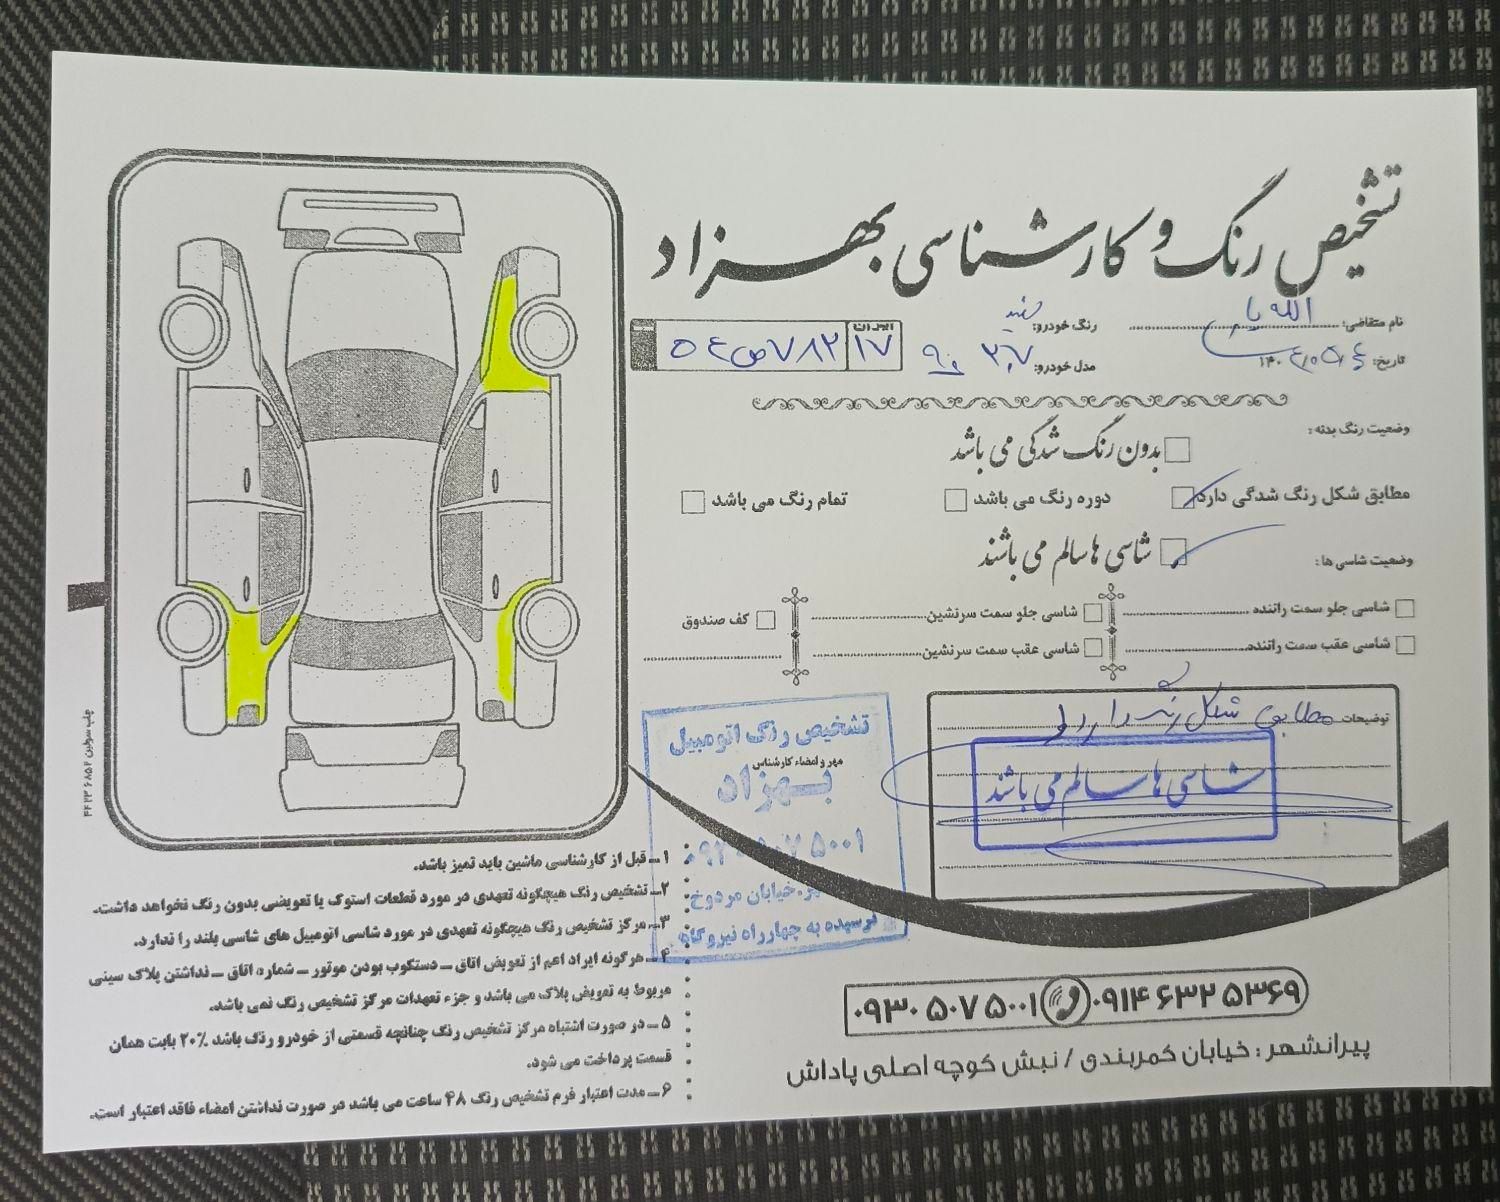 تشخیص رنگ و کارشناسی بهزاد
نام متقاضی: الله یار
رنگ خودرو: سفید
ایران
۱۷
تاریخ: ۱۴۰۴/۰۵/۰۴
مدل خودرو: ۲۰۷ ۹۰
وضعیت رنگ بدنه :
بدون رنگ شدگی می باشد
مطابق شکل رنگ شدگی دارد
دوره رنگ می باشد
تمام رنگ می باشد
وضعیت شاسی ها :
شاسی ها سالم می باشند
شاسی جلو سمت راننده
شاسی جلو سمت سرنشین
کف صندوق
شاسی عقب سمت راننده
شاسی عقب سمت سرنشین
توضیحات مطابق شکل رنگ دارد
شاسی ها سالم می باشند
تشخیص رنگ اتومبیل
مهر و امضاء کارشناس
بهزاد
۰۹۳۰۵۰۷۵۰۰۱
خیابان مردوخ
نرسیده به چهارراه نیروگاه
۱ــ قبل از کارشناسی ماشین باید تمیز باشد.
۲ــ تشخیص رنگ هیچگونه تعهدی در مورد قطعات استوک یا تعویضی بدون رنگ نخواهد داشت.
۳ــ مرکز تشخیص رنگ هیچگونه تعهدی در مورد شاسی اتومبیل های شاسی بلند را ندارد.
۴ــ هرگونه ایراد اعم از تعویض اتاق ــ دستکوب بودن موتور ــ شماره اتاق ــ نداشتن پلاک سینی
مربوط به تعویض پلاک می باشد و جزء تعهدات مرکز تشخیص رنگ نمی باشد.
۵ــ در صورت اشتباه مرکز تشخیص رنگ چنانچه قسمتی از خودرو رنگ باشد ۲۰٪ بابت همان
قسمت پرداخت می شود.
۶ــ مدت اعتبار فرم تشخیص رنگ ۴۸ ساعت می باشد در صورت نداشتن امضاء فاقد اعتبار است.
۰۹۱۴ ۶۳۲ ۵۳۶۹
۰۹۳۰ ۵۰۷ ۵۰۰۱
پیرانشهر : خیابان کمربندی / نبش کوچه اصلی پاداش